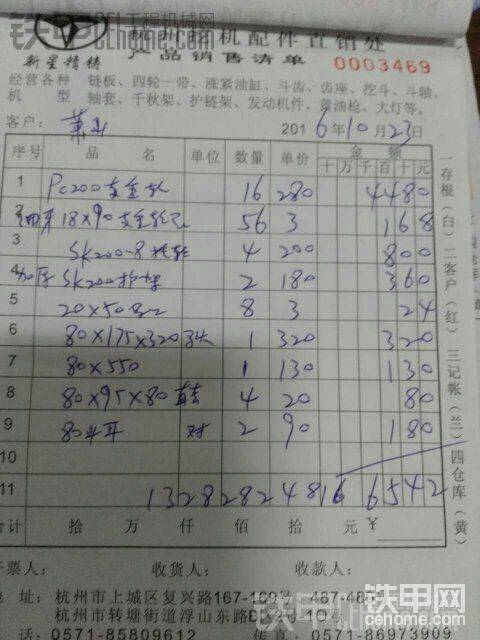 铁甲工程机械网
杭州挖机配件直销处
新星精铸 产品销售清单 0003469
经营各种 链板、四轮一带、涨紧油缸、斗齿、齿座、挖斗、斗轴、
机 型 轴套、千秋架、护链架、发动机件、黄油枪、大灯等。
客户: 萧山 2016年10月23日
序号 品 名 单位 数量 单价 金 额
十 万 千 百 十 元
1 PC200支重轮 16 280 4480
2 18×90支重轮 56 3 168
3 SK200-8托轮 4 200 800
4 加厚SK200护架 2 180 360
5 20×50 8 3 24
6 80×175×320 1 320 320
7 80×550 1 130 130
8 80×95×80 4 20 80
9 80斗耳 对 2 90 180
10
11 13282824816 6542
合计 拾 万 仟 佰 拾 元 ¥
开票人: 收货人: 收款人:
地 址: 杭州市上城区复兴路167-169号 487-488号
杭州市转塘街道浮山东路
电 话: 0571-85809612 传真: 0571-86973909
一存根(白)二客户(红)三记帐(兰)四仓库(黄)
铁甲网
cehome.com